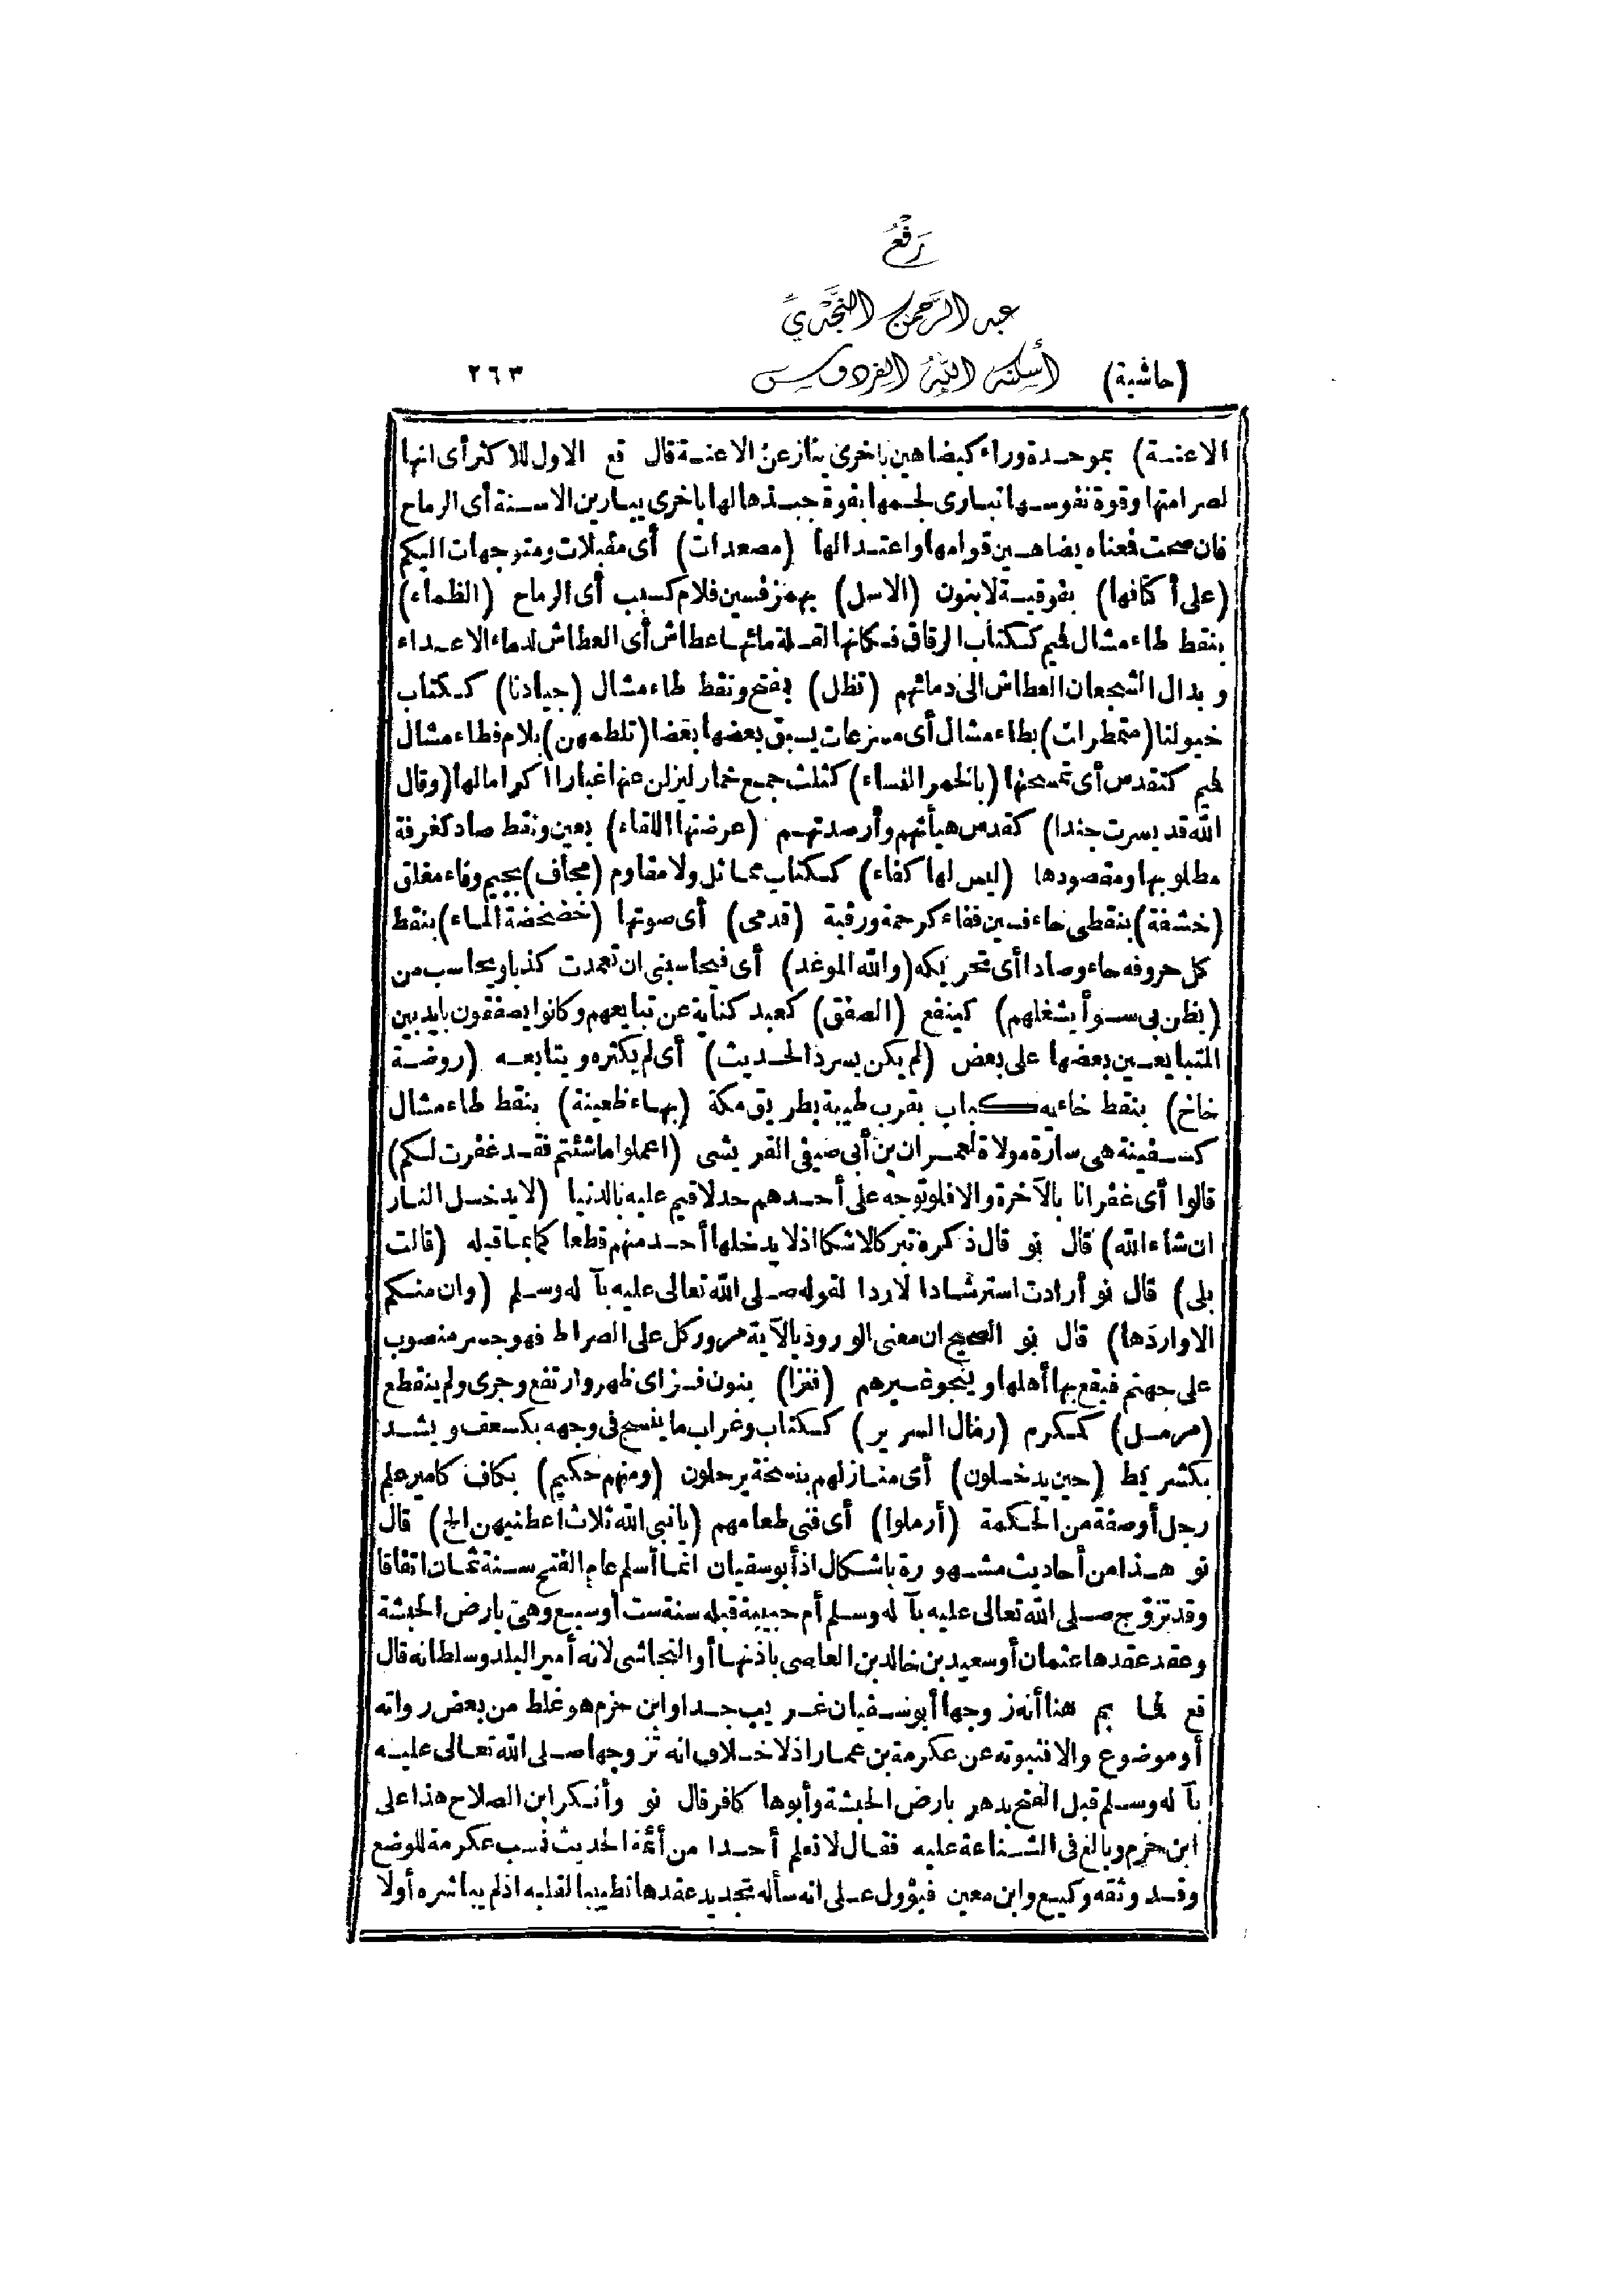 رَفْعُ
عبد الرَّحمن النَّجْديِّ
(حاشية) أسكنه اللهُ الفردوس ٢٦٣
الاعنة) بموحدة وراء كيضاهين باخرى ينازعن الاعنة قال قع الاول للاكثر أى انها
لصرامتها وقوة نفوسها تبارى لجمها بقوة جبذها لها باخرى يبارين الاسنة أى الرماح
فان صحت فعناه يضاهين قوامها واعتدالها (مصعدات) أى مقبلات ومتوجهات اليكم
(على أكتافها) بفوقية لا بنون (الاسل) بهمز فسين فلام كسبب أى الرماح (الظماء)
بنقط طاء مشال فميم ككتاب الرقاق فكانها لقلة مائها عطاش أى العطاش لدماء الاعداء
و بدال الشجعان العطاش الى دمائهم (تظل) بفتح ونقط طاء مشال (جيادنا) ككتاب
خيولنا (متمطرات) بطاء مشال أى مسرعات يسبق بعضها بعضا (تلطمهن) بلام فطاء مشال
فميم كتقدس أى تمسحنها (بالخمر النساء) كثلث جمع خمار ليزلن عنها غبارا اكراما لها (وقال
الله قد يسرت جندا) كقدس هيأتهم وأرصدتهم (عرضتها اللقاء) بعين ونقط صاد كغرفة
مطلوبها ومقصودها (ليس لها كفاء) ككتاب مماثل ولا مقاوم (مجاف) بجيم وفاء مغلق
(خشفة) بنقطى خاء فسين ففاء كرحمة ورقبة (قدمى) أى صوتها (خضخضة الماء) بنقط
كل حروفه خاء وصادا أى تحريكه (والله الموعد) أى فيحاسبنى ان تعمدت كذبا ويحاسب من
(يظن بى سوأ يشغلهم) كينفع (الصفق) كعبد كناية عن تبايعهم وكانوا يصفقون بايد بين
المتبايعين بعضها على بعض (لم يكن يسرد الحديث) أى لم يكثره ويتابعه (روضة
خاخ) بنقط خاءيه كباب بقرب طيبة بطريق مكة (بها ظعينة) بنقط طاء مشال
كسفينة هى سارة مولاة لعمران بن أبى صيفى القريشى (اعملوا ما شئتم فقد غفرت لكم)
قالوا أى غفرانا بالآخرة والا فلو توجه على أحدهم حد لاقيم عليه بالدنيا (لا يدخل النار
ان شاء الله) قال نو قال ذكره تبركا لا شكا اذ لا يدخلها أحد منهم قطعا كما بما قبله (قالت
بلى) قال نو أرادت استرشادا لا ردا لقوله صلى الله تعالى عليه بآ له وسلم (وان منكم
الا واردها) قال نو الصحيح ان معنى الورود بالآية مرور كل على الصراط فهو جسر منصوب
على جهنم فيقع بها أهلها وينجو غيرهم (فنزا) بنون فزاى ظهر وارتفع وجرى ولم ينقطع
(مرمل) كمكرم (رمال السرير) ككتاب وغراب ما ينسج فى وجهه بكسعف ويشد
بكشريط (حين يدخلون) أى منازلهم بنسخة يرحلون (ومنهم حكيم) بكاف كامير علم
رجل أو صفة من الحكمة (أرملوا) أى فنى طعامهم (يا نبى الله ثلاث اعطنيهن الخ) قال
نو هذا من أحاديث مشهورة باشكال اذ أبو سفيان انما أسلم عام الفتح سنة ثمان اتفاقا
وقد تزوّج صلى الله تعالى عليه بآ له وسلم أم حبيبة قبله سنة ست أو سبع وهى بارض الحبشة
وعقد عقدها عثمان أو سعيد بن خالد بن العاصى باذنها أو النجاشى لانه أمير البلد وسلطانه قال
قع فما بم هنا أنه زوجها أبو سفيان غريب جدا وابن حزم هو غلط من بعض رواته
أو موضوع والآفة به عن عكرمة بن عمار اذ لا خلاف انه تزوجها صلى الله تعالى عليه
بآ له وسلم قبل الفتح بدهر بارض الحبشة وأبوها كافر قال نو وأنكر ابن الصلاح هذا على
ابن حزم وبالغ فى الشناعة عليه فقال لا نعلم أحدا من أئمة الحديث نسب عكرمة للوضع
وقد وثقه وكيع وابن معين فيؤول على انه سأله تجديد عقدها تطييبا لقلبه اذ لم يباشره أولا